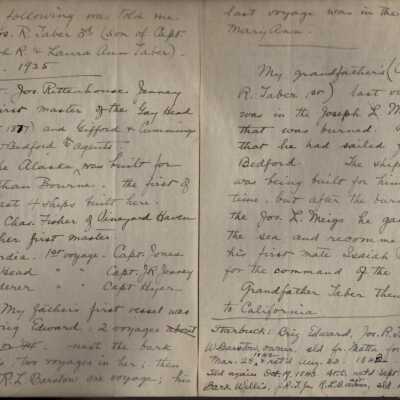 following was told me
os. R. Taber 3rd (son of Capt
ph R & Laura Ann Taber).
. 1925
Jos. Rittenhouse Jenney
first master of the Gay Head
1877) and Gifford & Cummings
Bedford agents
he Alaska was built for
than Bourne. the first of
ast 4 ships built here.
Chas. Fisher of Vineyard Haven
her first master.
rdia. 1st voyage. Capt. Jones
Head " " Capt. J.R. Jenney
derer " " Capt Hyer.
My fathers first vessel was
rig Edward: 2 voyages
next the bark
two voyages in her; then
R. L. Barstow one voyage; his
last voyage was in the
Mary Ann.
My grandfather's (
R. Taber sr) last vo
was in the Joseph L. M
that was burned.
that he had sailed f
Bedford. The ship
was being built for him
time, but after the bur
the Jos. L. Meigs he ga
the sea and recomme
his first mate Isaiah
for the command of the
Grandfather Taber then
to California
Starbuck: Brig Edward, Jos. R. T
W. Barstow, owner, sld fr. Matta
Mar. 28, 1842, ret'd
Sld again Oct. 19, 1843 ret'd Sept
Bark Willis, J.R.T. for R. L. Barstow, sld.